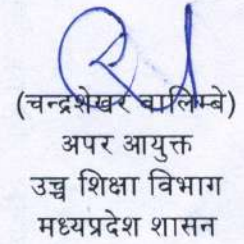 (चन्द्रशेखर वालिम्बे)
अपर आयुक्त
उच्च शिक्षा विभाग
मध्यप्रदेश शासन